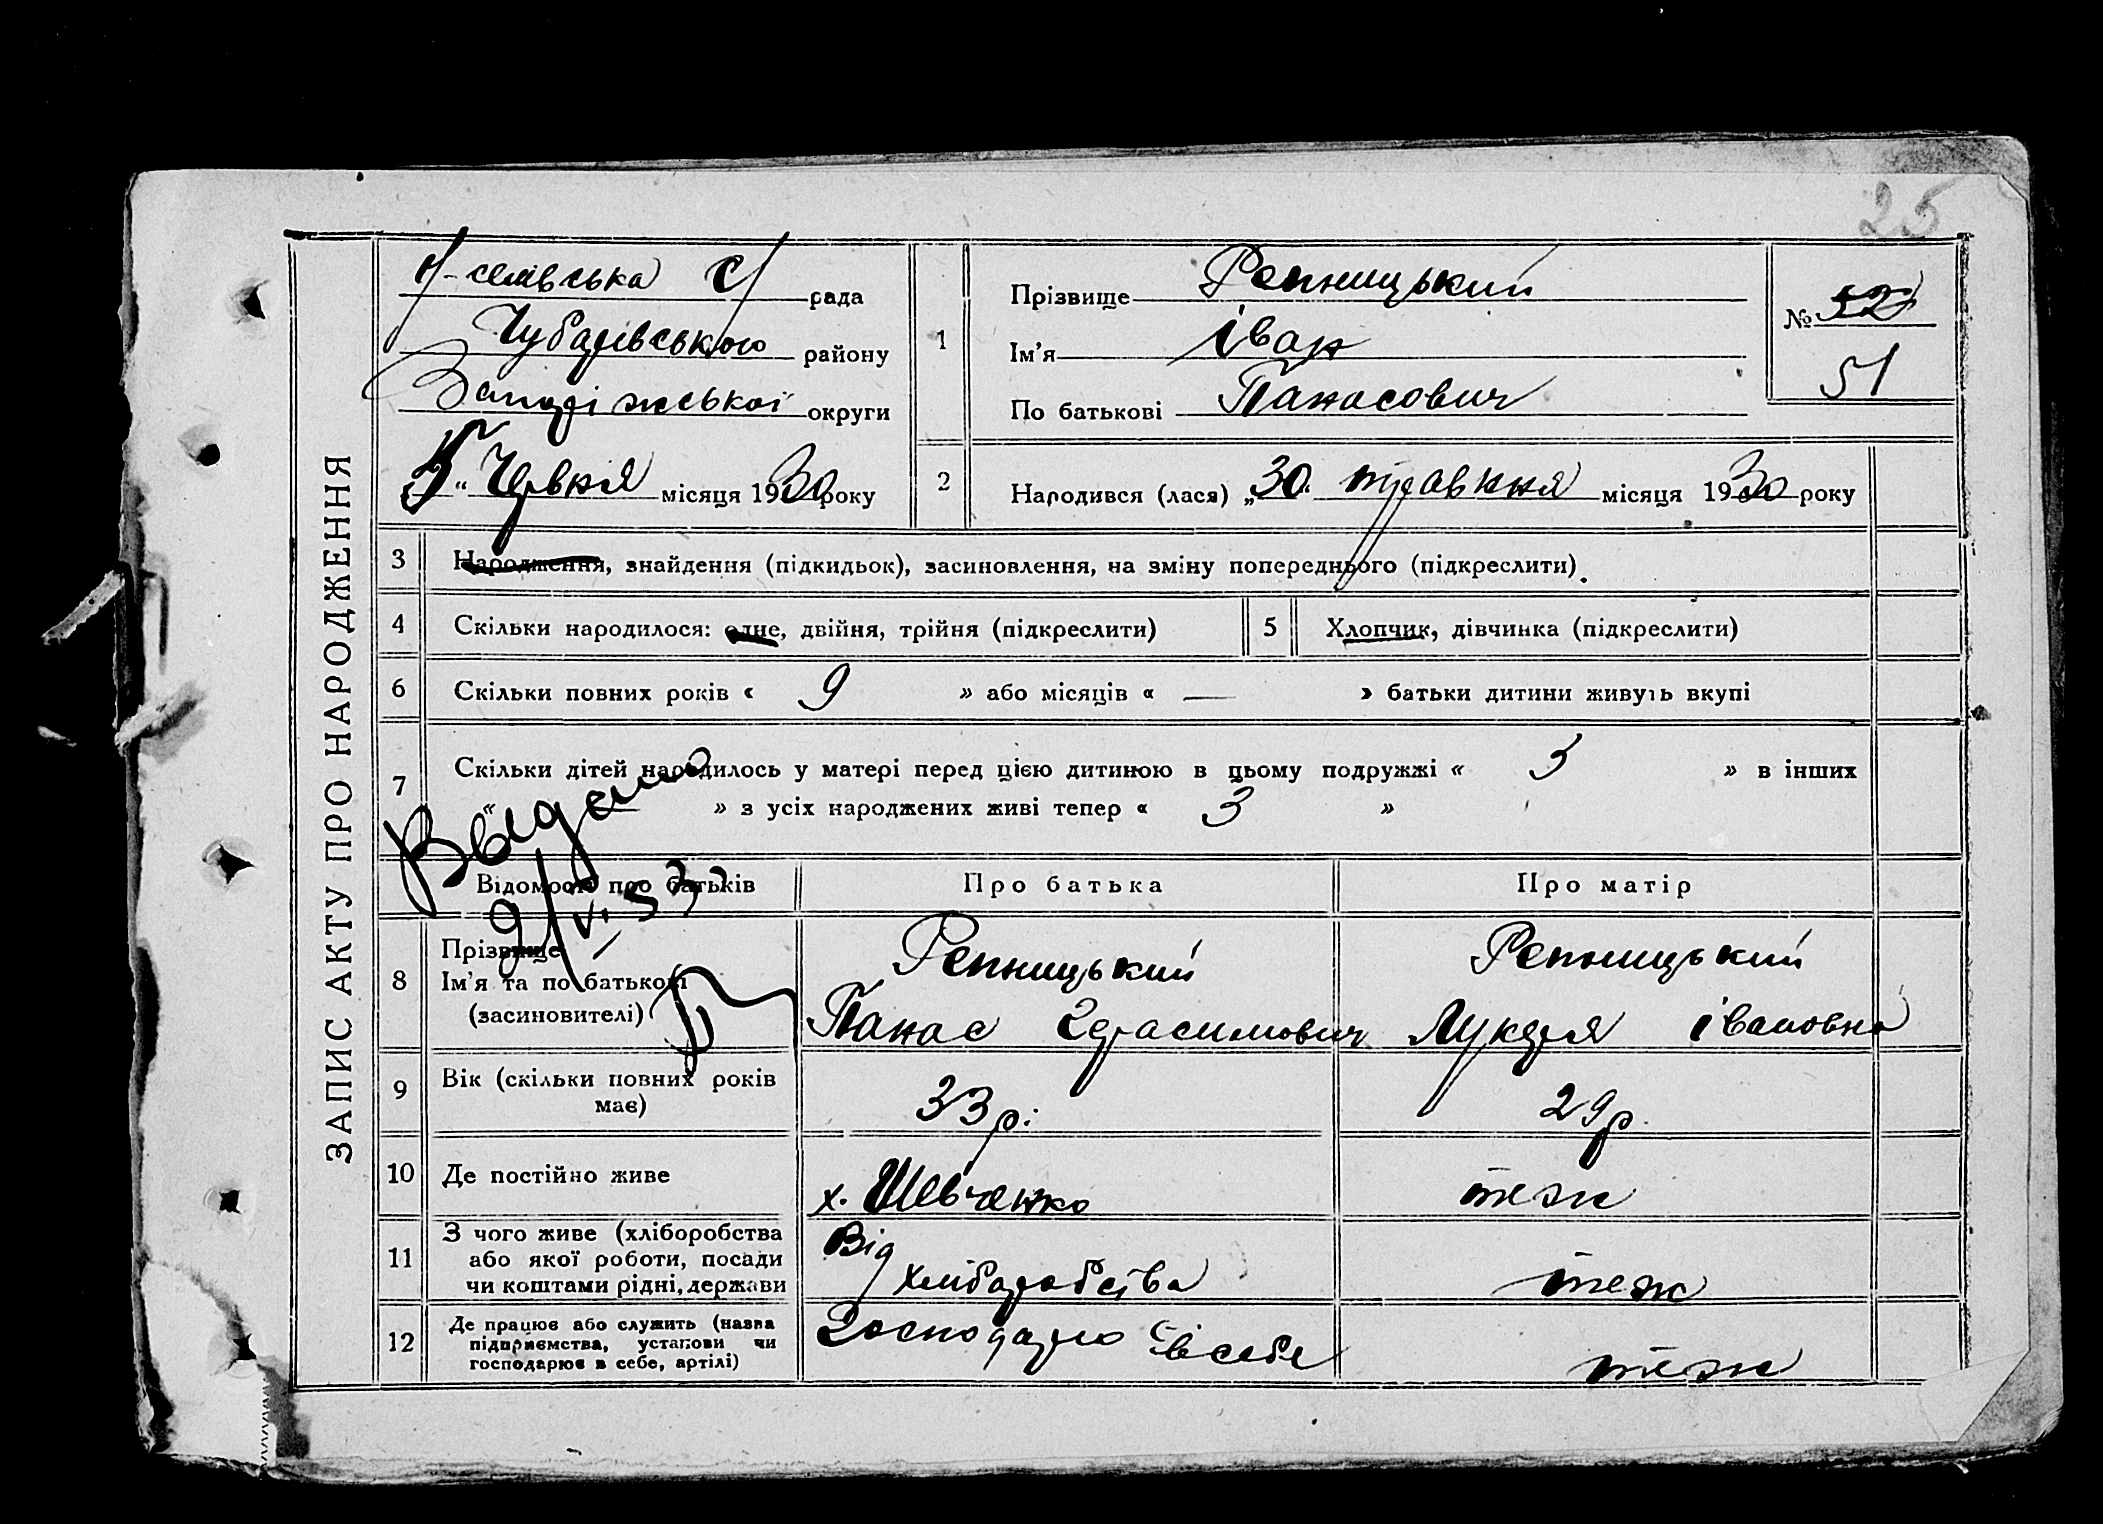 25
ЗАПИС АКТУ ПРО НАРОДЖЕННЯ
Н-селівська С/ рада
Чубарівського району
Запоріжської округи
5 “ Червня місяця 1930 року
1
Прізвище Репницький
Ім'я Іван
По батькові Панасович
№ 52
51
2 Народився (лася) „30“ травння місяця 1930 року
3 Народження, знайдення (підкидьок), засиновлення, на зміну попереднього (підкреслити)
4 Скільки народилося: одне, двійня, трійня (підкреслити)
5 Хлопчик, дівчинка (підкреслити)
6 Скільки повних років « 9 » або місяців « — » батьки дитини живуть вкупі
7 Скільки дітей народилось у матері перед цією дитиною в цьому подружжі « 3 » в інших
« — » з усіх народжених живі тепер « 3 »
Выдано
9/VI-53
Відомості про батьків Про батька Про матір
8 Прізвище
Ім'я та по батькові
(засиновителі)
Репницький
Панас Герасимович
Репницький
Лукеря Івановна
9 Вік (скільки повних років
має)
33 р.
29 р.
10 Де постійно живе х. Шевченко теж
11 З чого живе (хліборобства
або якої роботи, посади
чи коштами рідні, держави
Від
хліборобства
теж
12 Де працює або служить (назва
підприємства, установи чи
господарює в себе, артілі)
Господарю в себе
теж